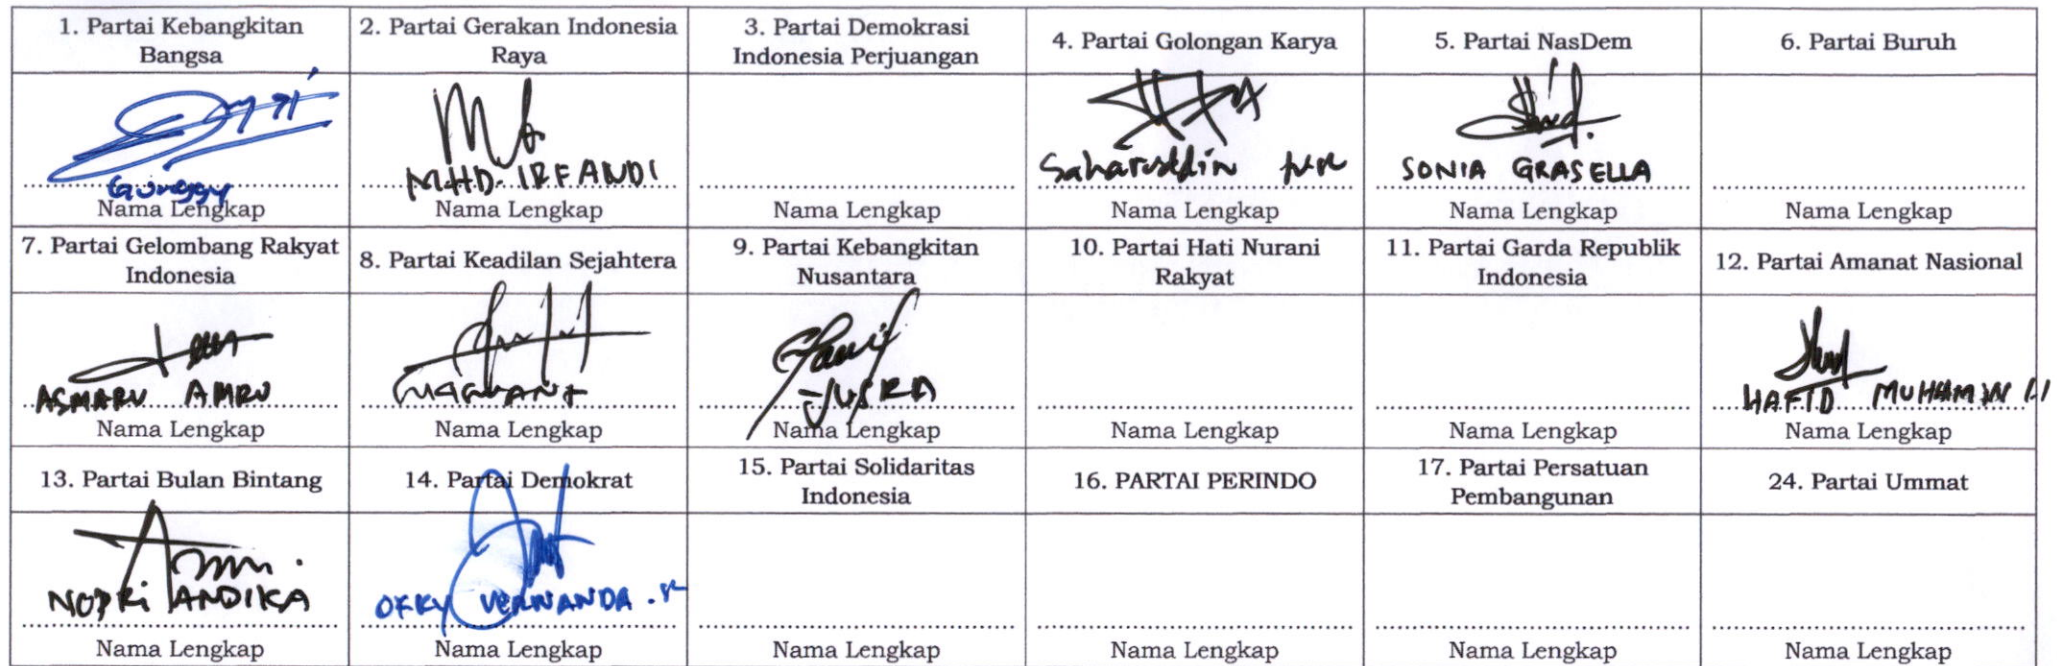 1. Partai Kebangkitan
Bangsa
2. Partai Gerakan Indonesia
Raya
3. Partai Demokrasi
Indonesia Perjuangan
4. Partai Golongan Karya
5. Partai NasDem
6. Partai Buruh
Gunggy
MHD. IRFANDI
Saharuddin
SONIA GRASELLA
Nama Lengkap
Nama Lengkap
Nama Lengkap
Nama Lengkap
Nama Lengkap
Nama Lengkap
7. Partai Gelombang Rakyat
Indonesia
8. Partai Keadilan Sejahtera
9. Partai Kebangkitan
Nusantara
10. Partai Hati Nurani
Rakyat
11. Partai Garda Republik
Indonesia
12. Partai Amanat Nasional
ASMARU AMRU
JUSRA
HAFID
Nama Lengkap
Nama Lengkap
Nama Lengkap
Nama Lengkap
Nama Lengkap
Nama Lengkap
13. Partai Bulan Bintang
14. Partai Demokrat
15. Partai Solidaritas
Indonesia
16. PARTAI PERINDO
17. Partai Persatuan
Pembangunan
24. Partai Ummat
NOPRi ANDIKA
OFKY VERNANDA
Nama Lengkap
Nama Lengkap
Nama Lengkap
Nama Lengkap
Nama Lengkap
Nama Lengkap